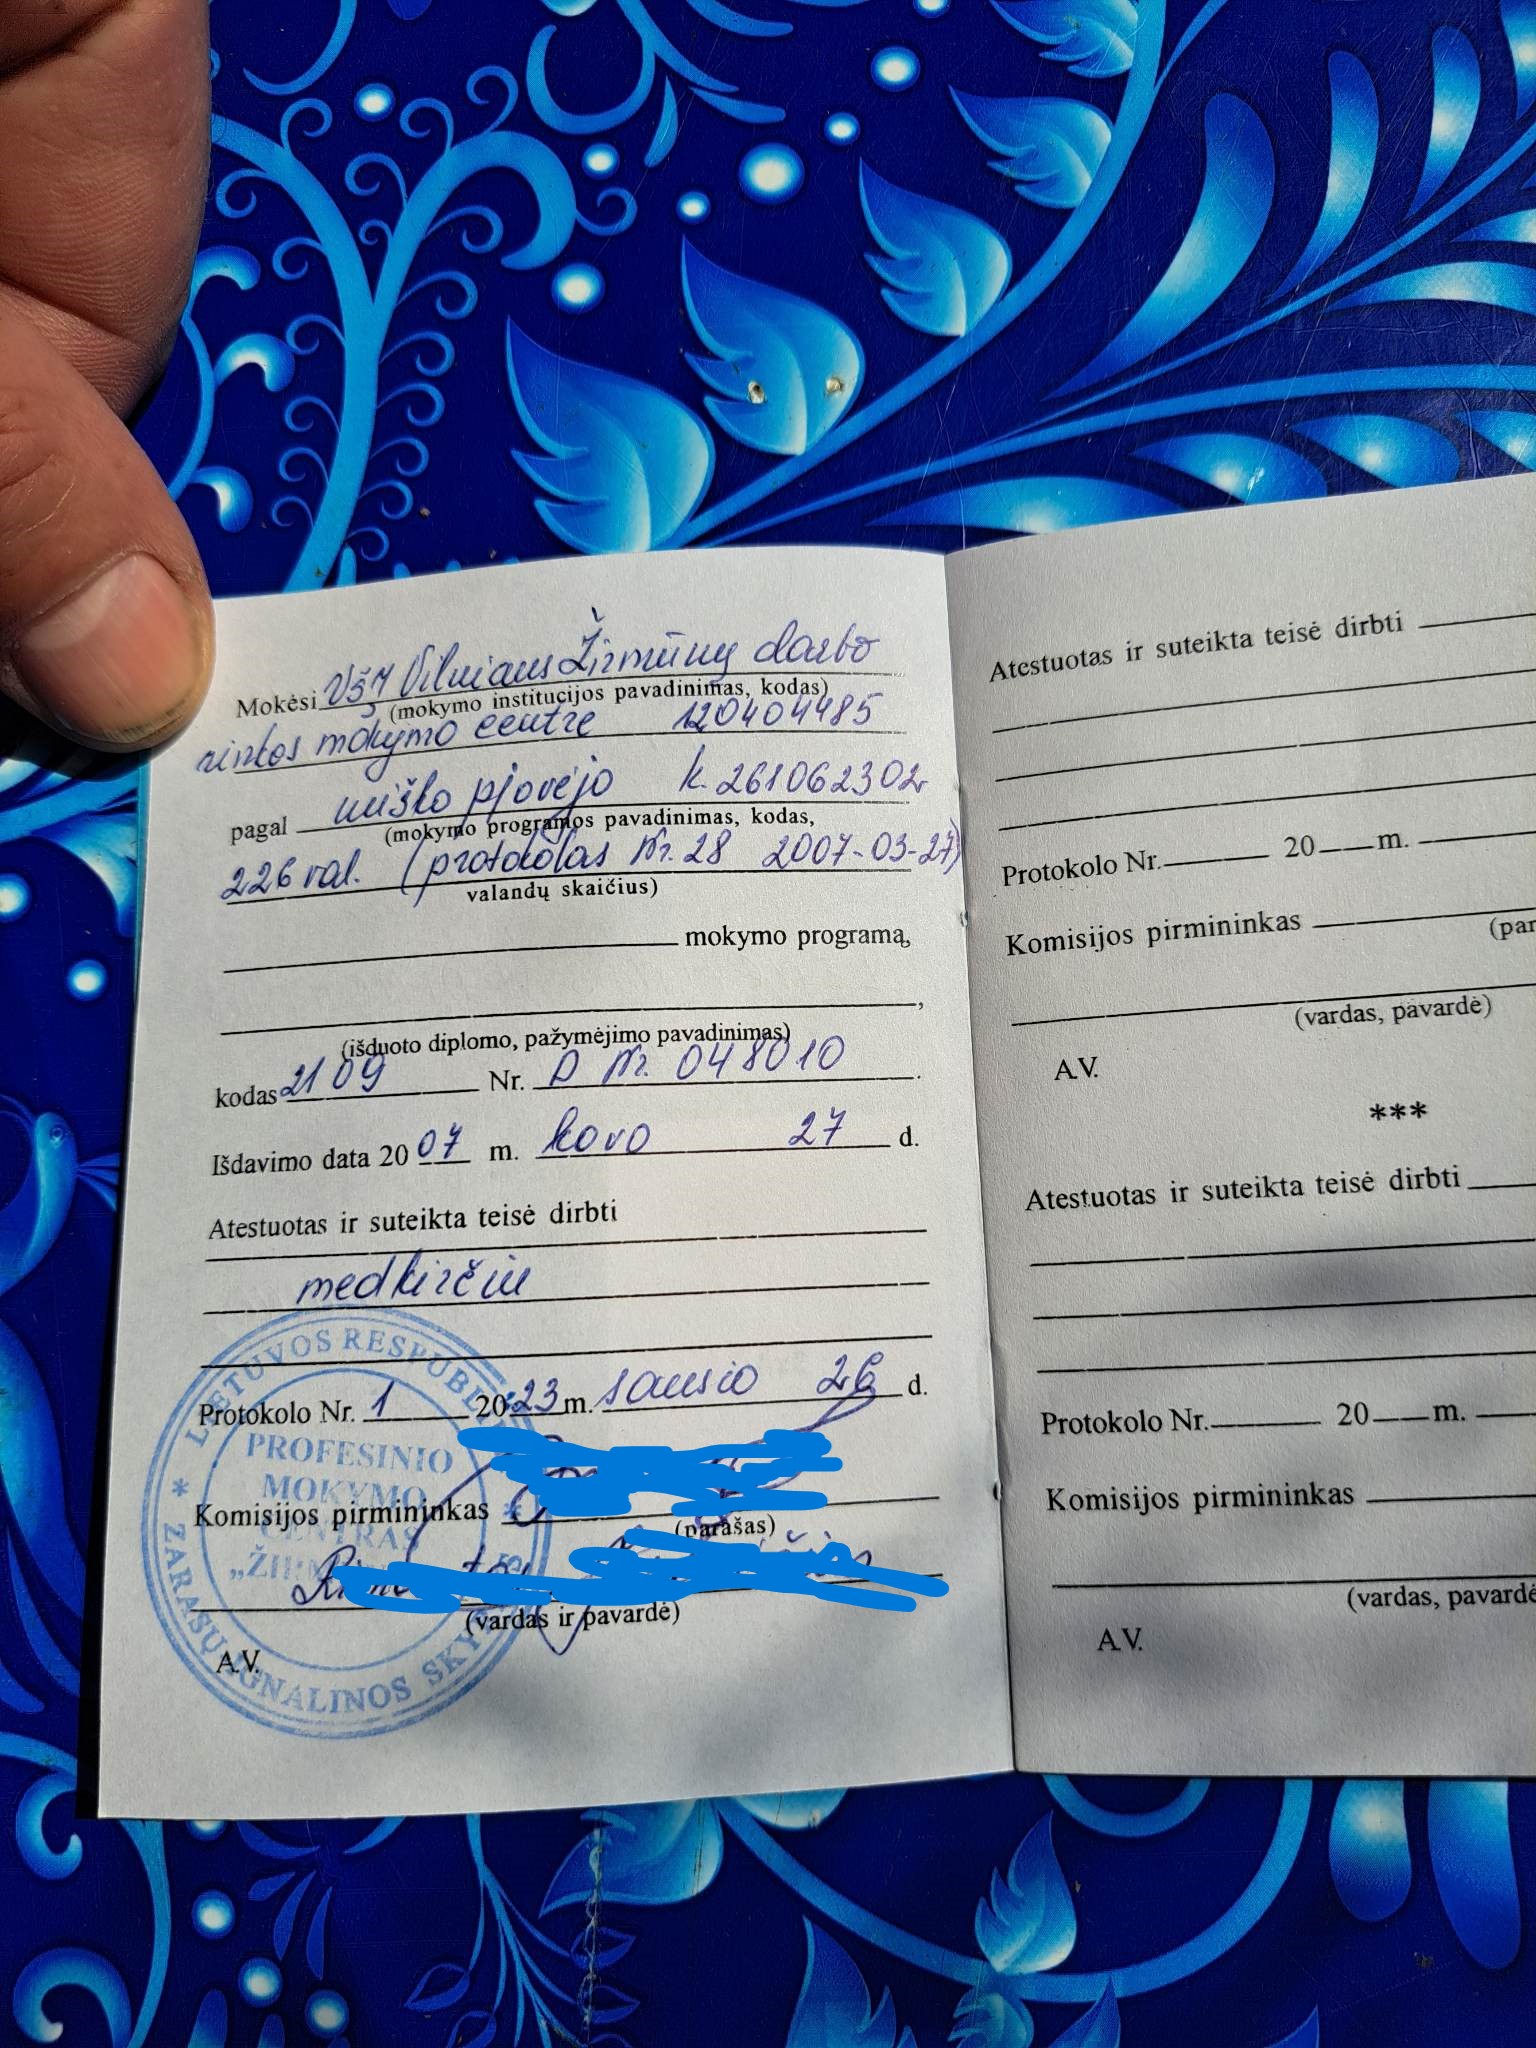 Mokėsi VšĮ Vilniaus Žirmūnų darbo
(mokymo institucijos pavadinimas, kodas)
rinkos mokymo centre 120404485
pagal miško pjovėjo k. 261062302
(mokymo programos pavadinimas, kodas,
226 val. (protokolas Nr. 28 2007-03-27)
valandų skaičius)
mokymo programą,
,
(išduoto diplomo, pažymėjimo pavadinimas)
kodas 2109 Nr. D Nr. 048010.
Išdavimo data 2007 m. kovo 27 d.
Atestuotas ir suteikta teisė dirbti
medkirčiu
Protokolo Nr. 1 2023 m. sausio 26 d.
Komisijos pirmininkas
(parašas)
(vardas ir pavardė)
A.V.
LIETUVOS RESPUBLI
PROFESINIO
MOKYMO
CENTRAS
* ZARASŲ IGNALINOS SKY
Atestuotas ir suteikta teisė dirbti
Protokolo Nr. 20 m.
Komisijos pirmininkas
(par
(vardas, pavardė)
A.V.
***
Atestuotas ir suteikta teisė dirbti
Protokolo Nr. 20 m.
Komisijos pirmininkas
(vardas, pavardė
A.V.